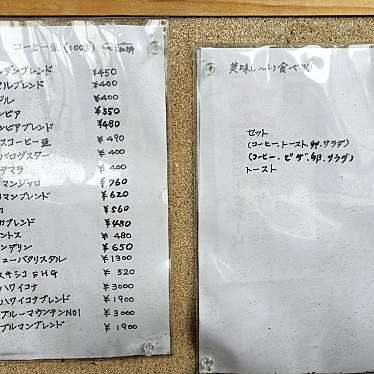 コーヒー豆 (100g)
ルデンブレンド ¥450
ルブレンド ¥400
ジル ¥400
ンビア ¥550
ンビアブレンド ¥480
スコーヒー豆 ¥490
バロブスター ¥400
テマラ ¥400
マンジャロ ¥760
マンブレンド ¥620
カ ¥560
カブレンド ¥480
ントス ¥480
ンデリン ¥650
ューバクリスタル ¥1300
キシコSHG ¥520
ハワイコナ ¥3000
ハワイコナブレンド ¥1900
ブルーマウンテンNO1 ¥3000
ブルマンブレンド ¥1900
美味し〜い食べ方
セット
(コーヒー、トースト、卵、サラダ)
(コーヒー、ピザ、卵、サラダ)
トースト